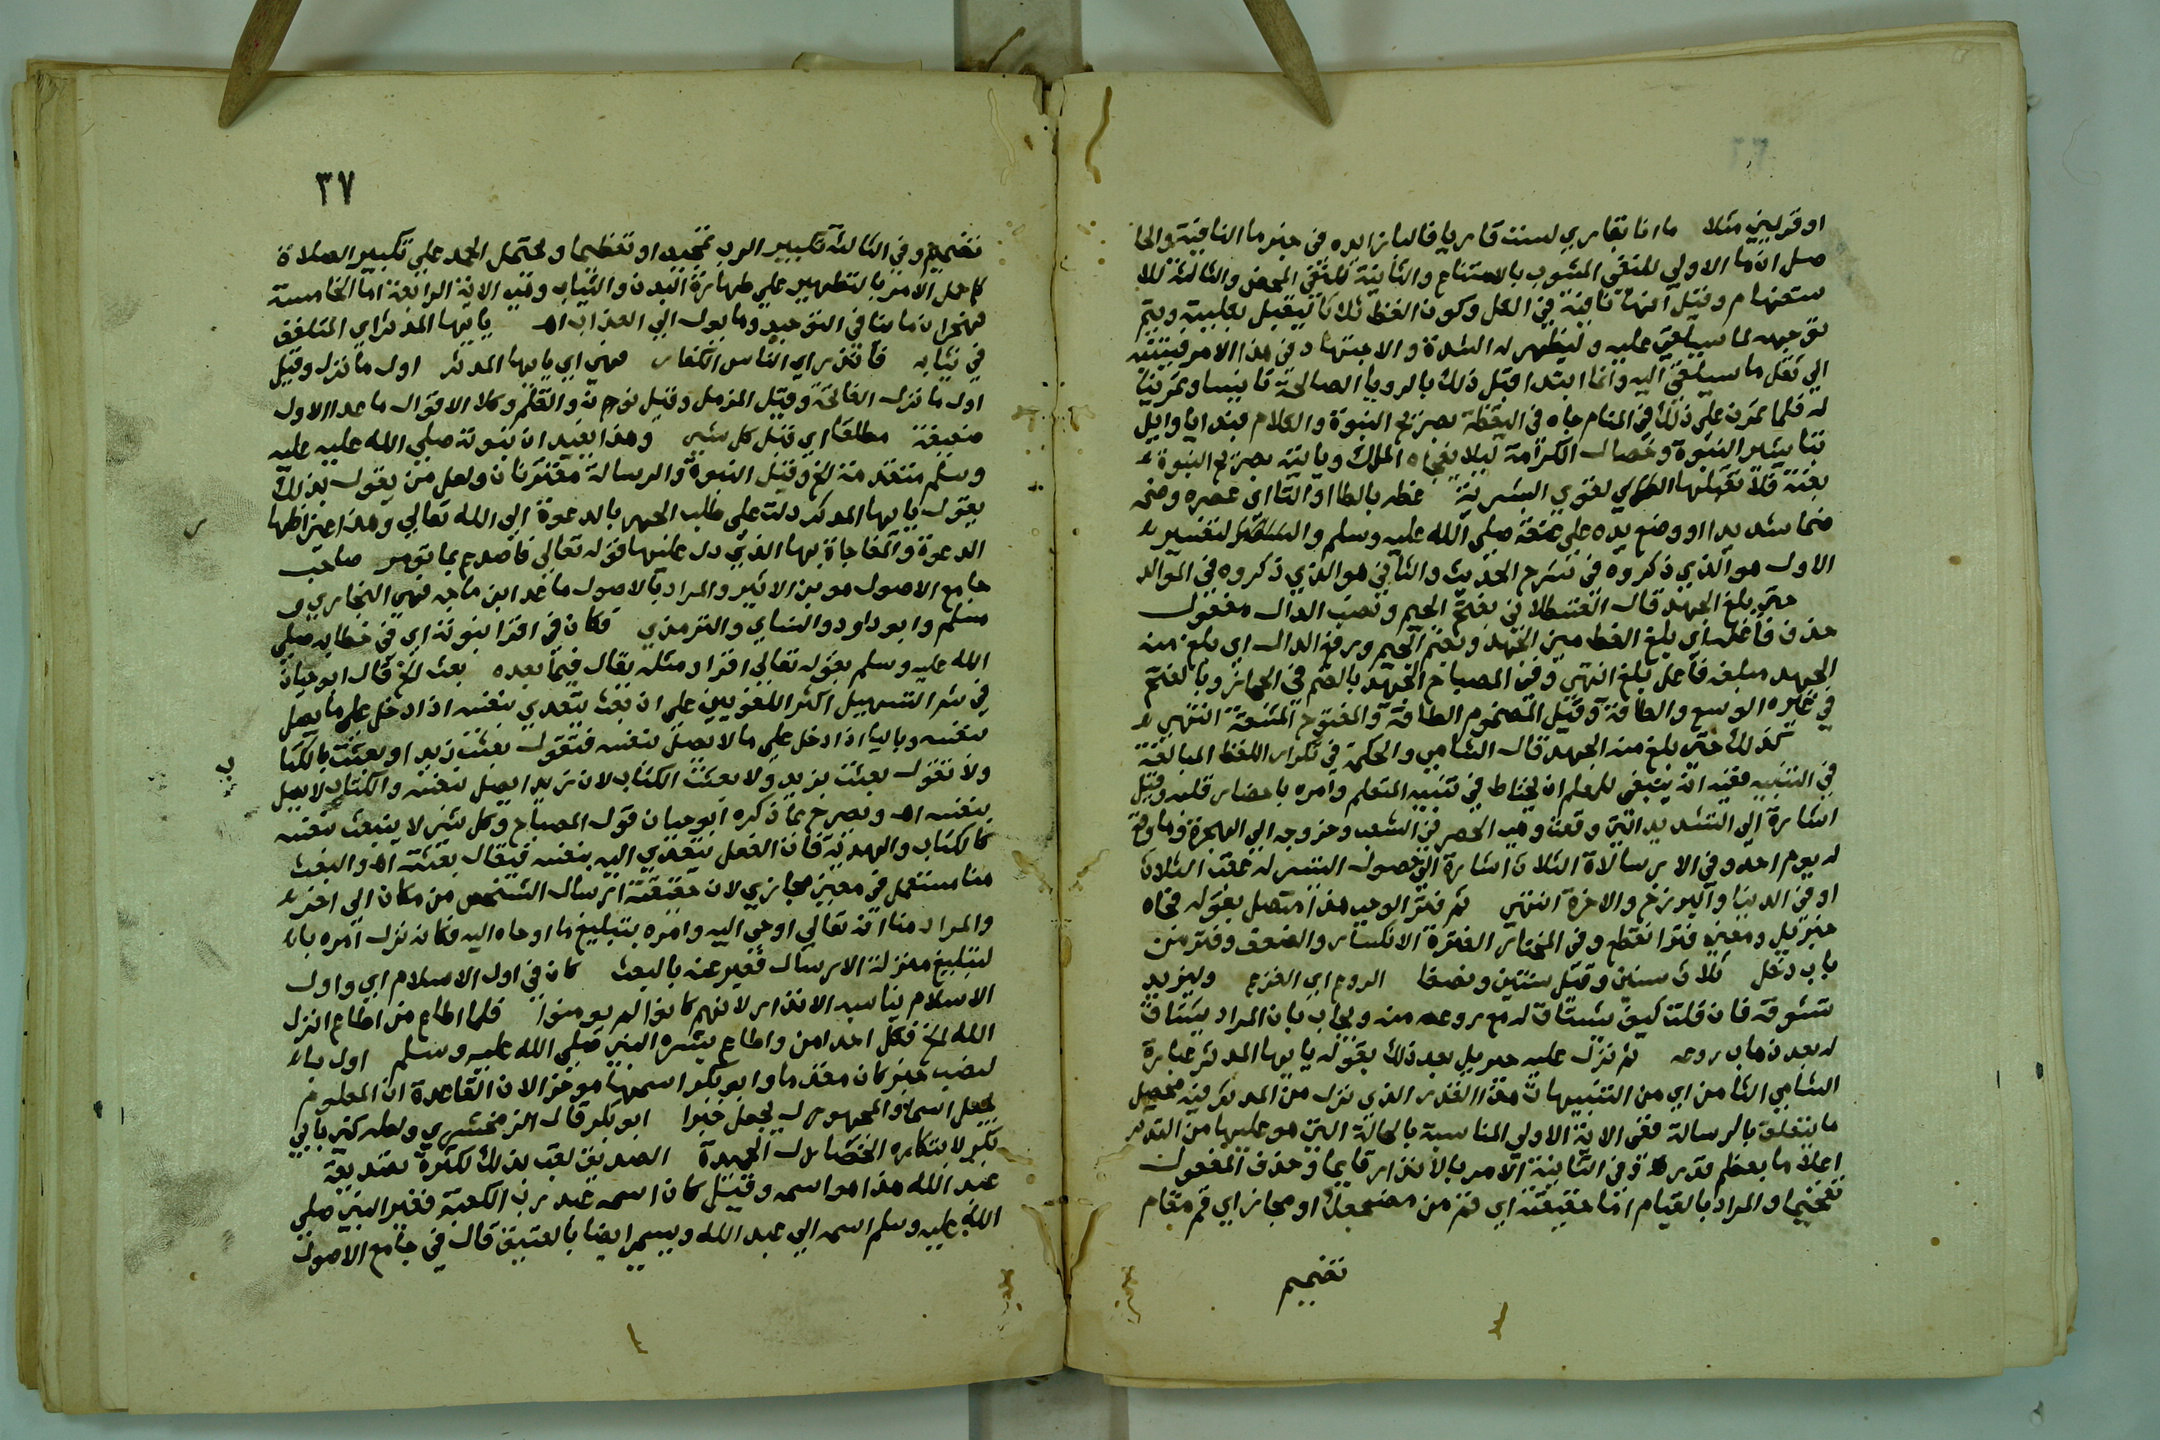 او قرييني مثلا ما انا بقاري لست قاريا فالبا زايده في خبر ما النافية والحا
صل ان ما الاولي للنفي المشوب بالامتناع والثانية للنفي المحض والثالثة للا
ستفهام وقيل انها نافية في الكل وكون الغط ثلاثا ليقبل بقلبية ويتم
توجهه لما سيلقي عليه وليظهر له الشدة والاجتهاد في هذا الامر فيتنبه
الي ثقل ما سيلقي اليه وانما ابتدا قبل ذلك بالرويا الصالحة تانيسا وتمرينا
له فلما تمرن علي ذلك في المنام جاه في اليقظة بصريح النبوة والكلام فبدا باوايل
تباشير النبوة وخصال الكرامة ليلا يفجاه الملك وياتيه بصريح النبوة
بغتة فلا تقبلها القوي البشرية غطه بالطا او التا اي عصره وضمه
ضما شديدا او وضع يده علي عنقه صلي الله عليه وسلم والتفسير
الاول هو الذي ذكروه في شرح الحديث والثاني هو الذي ذكروه في الموالد
حتي بلغ الجهد قال القسطلاني بفتح الجيم ونصب الدال مفعول
حذف فاعله اي بلغ الغط مني الجهد وبضم الجيم ورفع الدال اي بلغ منه
الجهد مبلغه فاعل بلغ انتهي وفي المصباح الجهد بالضم في الحجاز وبالفتح
في غيره الوسع والطاقة وقيل المضموم الطاقة والمفتوح المشقة انتهي
كذلك حتي بلغ منه الجهد قال الشامي والحكمة في تكرار اللفظ المبالغة
في التنبيه ففيه انه ينبغي للمعلم ان يحتاط في تنبيه المتعلم وامره باحضار قلبه وقيل
اشارة الي التشديد التي وقعت وهي الحصر في الشعب وخروجه الي الهجرة وما وقع
له يوم احد وفي الارسالات الثلاث اشارة الي حصول التيسر له عقب الثلاث
او في الدنيا والبرزخ والاخرة انتهي ثم فتر الوحي هذا متصل بقوله فجاه
جبريل ومعني فترا نقطع وفي المختار الفترة الانكسار والضعف وفتر من
باب دخل ثلاث سنين وقيل سنتين ونصفا الروع اي الفزع وليزيد
تشوقه فان قلت كيف يشتاق له مع روعه منه ويجاب بان المراد يشتاق
له بعد ذهاب روعه ثم نزل عليه جبريل بعد ذلك بقوله يايها المدثر عبارة
الشامي الثامن اي من التنبيهات هذا القدر الذي نزل من المدثر فيه محصل
ما يتعلق بالرسالة ففي الاية الاولي المناسبة بالحالة التي هو عليها من التدثر
اعلاما بعظم قدره وفي الثانية الامر بالانذار قايما وحذف المفعول
تفخيما والمراد بالقيام اما حقيقته اي قم من مضجعك او مجاز اي قم مقام
تصميم
٣٧
تصميم وفي الثالثة تكبير الرب تمجيدا وتعظيما ويحتمل الحمد علي تكبير الصلاة
كما حمل الامر بالتطهير علي طهارة البدن والثياب وهي الاية الرابعة اما الخامسة
فهجران ما ينافي التوحيد وما يول الي العذاب اه يايها المدثر اي المتلفف
في ثيابه فانذر اي الناس الكفار فهي اي يايها المدثر اول ما نزل وقيل
اول ما نزل الفاتحة وقيل المزمل وقيل نون والقلم وكلا الاقوال ما عدا الاول
ضعيفة مطلقا اي قبل كل شي وهذا يفيد ان نبوته صلي الله عليه عليه
وسلم متقدمة الخ وقيل النبوة والرسالة مقترنان ولعل من يقول بذلك
يقول يايها المدثر دلت علي طلب الجهر بالدعوة الي الله تعالي وهذا غير اظها
الدعوة والمفاجاة بها الذي دل عليها قوله تعالي فاصدع بما تومر صاحب
جامع الاصول هو بن الاثير والمراد بالاصول ما عدا ابن ماجه فهي البخاري و
مسلم وابو داود والنساي والترمذي فكان في اقرا نبوته اي في خطابه صلي
الله عليه وسلم بقوله تعالي اقرا ومثله يقال فيما بعده بعث الخ قال ابو حيان
في شر التسهيل اكثر اللغويين علي ان بعث يتعدي بنفسه اذا دخل علي ما يصل
بنفسه وباليا اذا دخل علي ما لا يصل بنفسه فتقول بعثت زيدا وبعثت بالكتا
ب
ولا تقول بعثت بزيد ولا بعثت الكتاب لان زيدا يصل بنفسه والكتاب لا يصل
بنفسه اه ويصرح بما ذكره ابو حيان قول المصباح وكل شي لا ينبعث بنفسه
كالكتاب والهدية فان الفعل يتعدي اليه بنفسه فيقال بعثته اه والبعث
هنا مستعمل في معني مجازي لان حقيقته ارسال الشخص من مكان الي اخر
والمراد هنا انه تعالي اوحي اليه وامره بتبليغ ما اوحاه اليه فكانه نزل امره بال
لتبليغ منزلة الارسال فعبر عنه بالبعث كان في اول الاسلام اي واول
الاسلام يناسبه الانذار لانهم كانوا لم يومنوا فلما اطاع من اطاع انزل
الله الخ فكل احد امن واطاع بشره النبي صلي الله عليه وسلم اول با
لنصب خبر كان مقدما وابو بكر اسمها موخرا لان القاعدة ان المعلوم
يجعل اسما والمجهول يجعل خبرا ابو بكر قال الزمخشري ولعله كني بابي
بكر لابتكاره الخصال الحميدة الصديق لقب بذلك لكثرة تصديقه
عبد الله هذا هو اسمه وقيل كان اسمه عبد رب الكعبة فغير النبي صلي
الله عليه وسلم اسمه الي عبد الله ويسمي ايضا بالعتيق قال في جامع الاصول